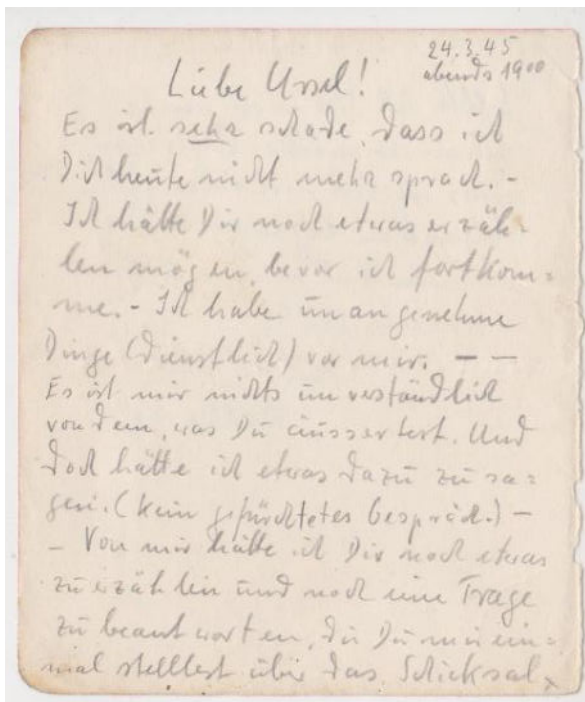 24.3.45
abends 19⁰⁰
Liebe Ursel!
Es ist sehr schade, dass ich
Dich heute nicht mehr sprach. –
Ich hätte Dir noch etwas erzäh=
len mögen, bevor ich fortkom=
me. – Ich habe unangenehme
Dinge (dienstlich) vor mir. — —
Es ist mir nichts unverständlich
von dem, was Du äussertest. Und
doch hätte ich etwas dazu zu sa=
gen. (kein gefürchtetes Gespräch.) –
– Von mir hätte ich Dir noch etwas
zu erzählen und noch eine Frage
zu beantworten, die Du mir ein=
mal stelltest über das Schicksal